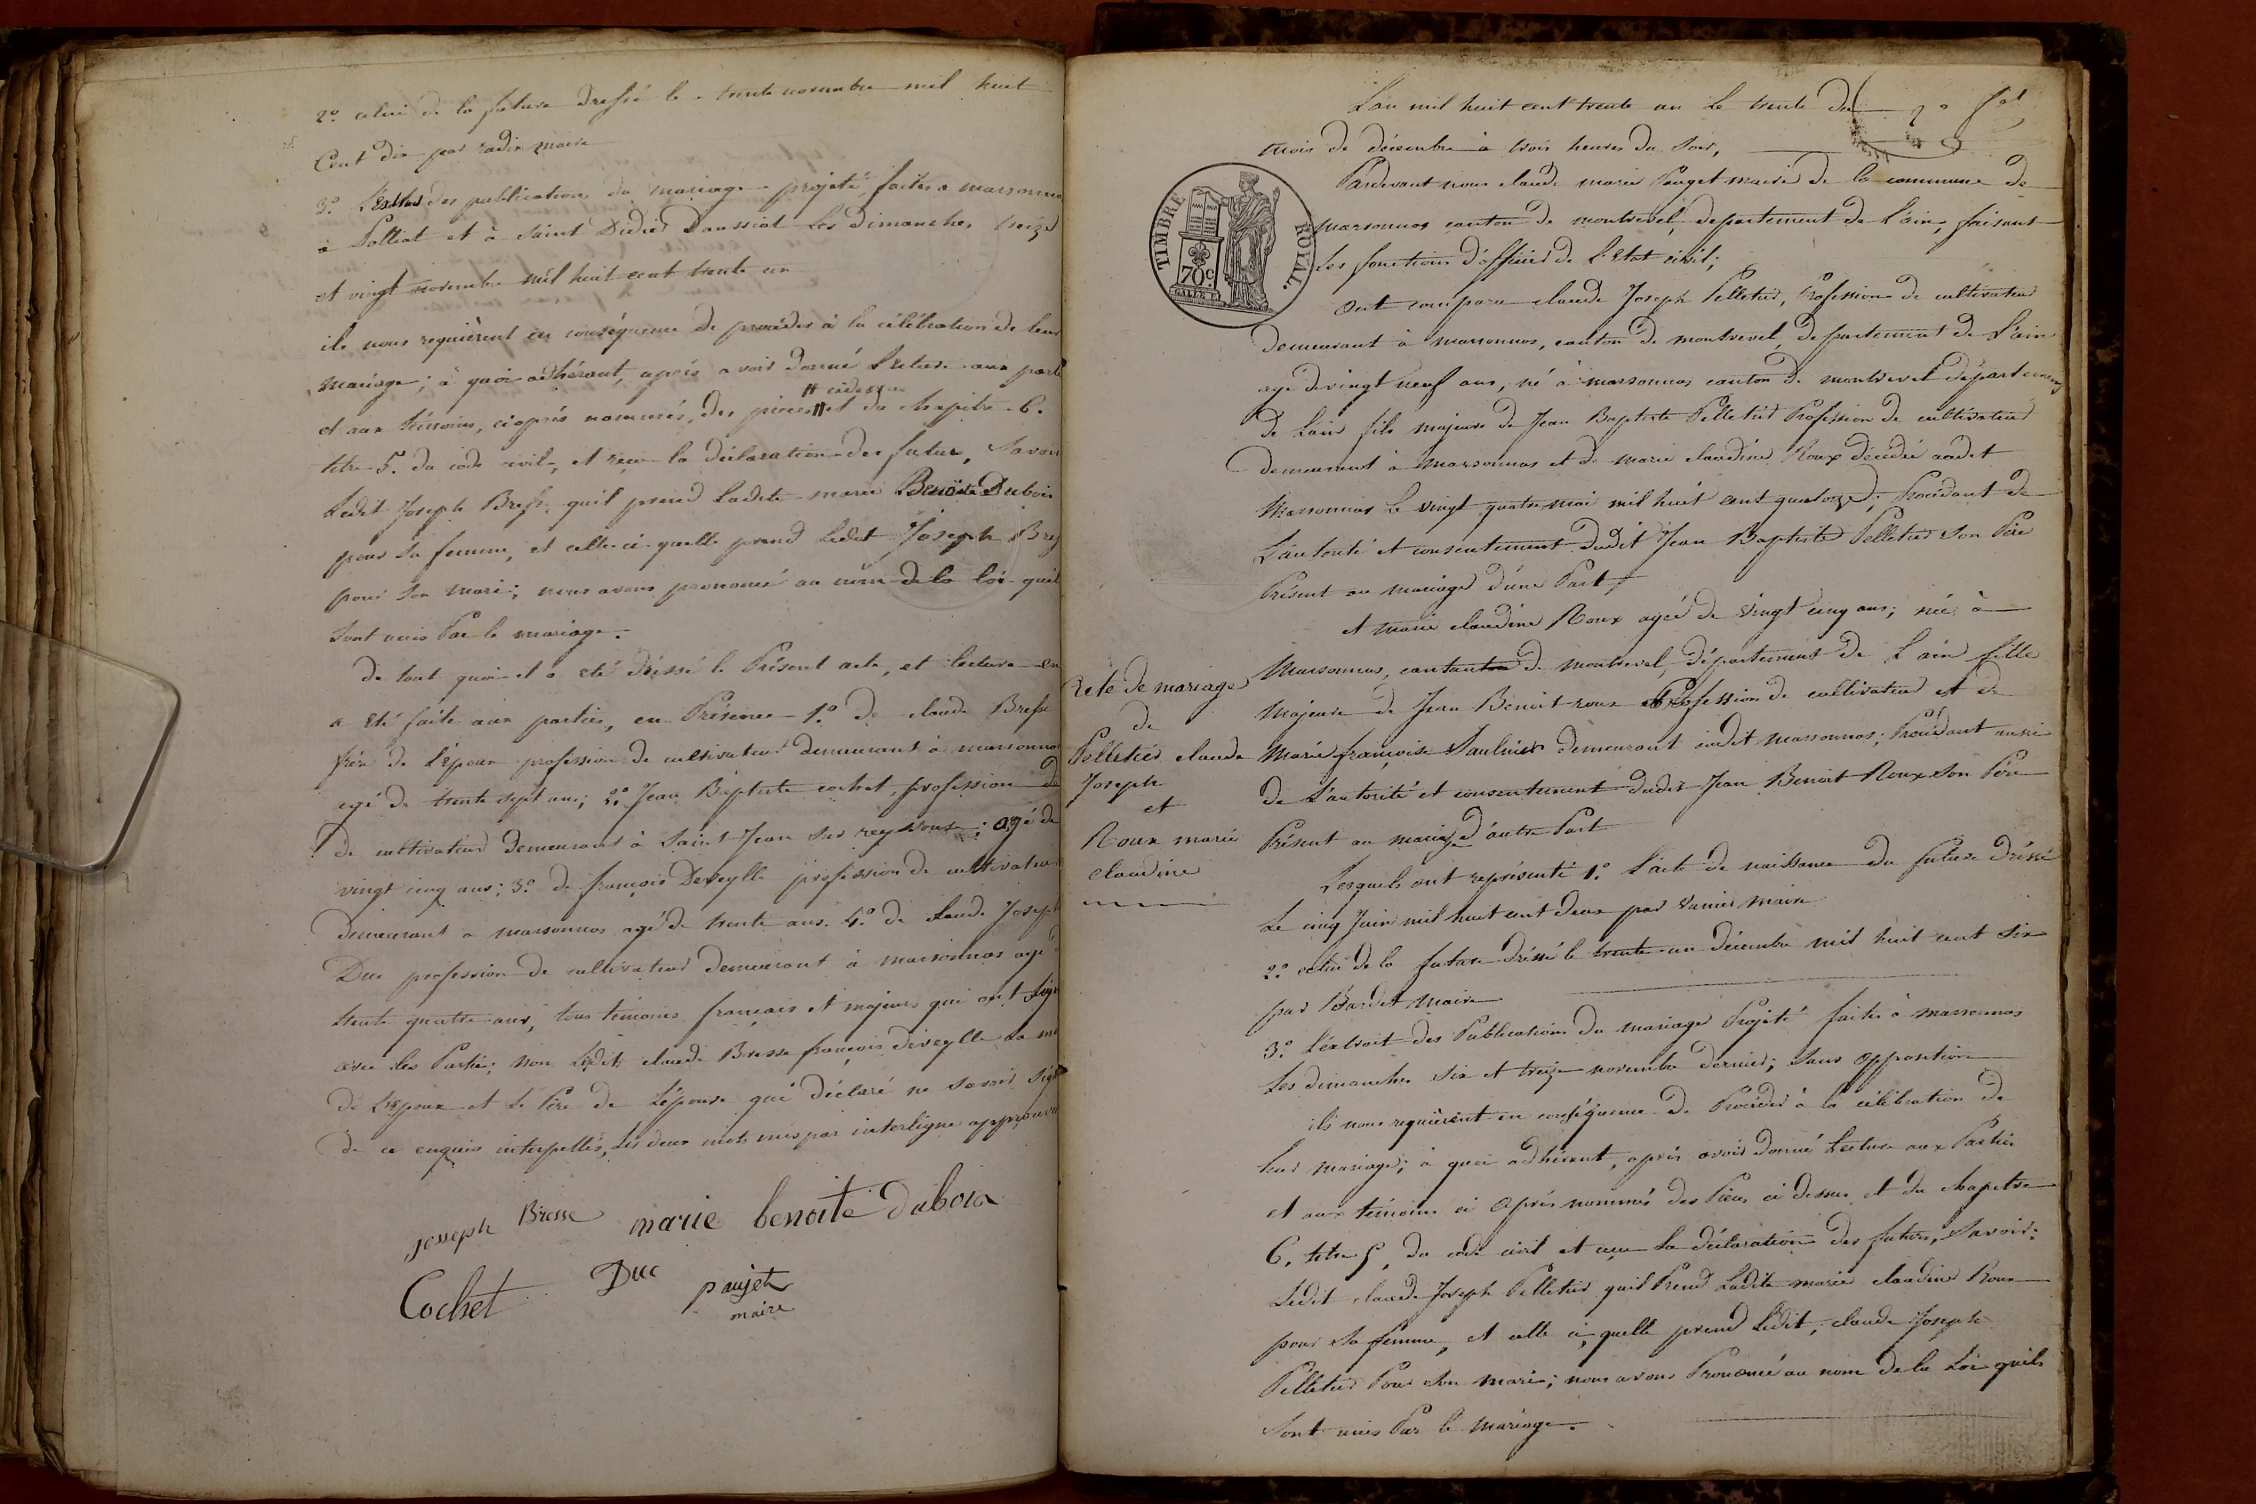 2º celui de la future dressé le trente novembre mil huit
Cent dix par radix maire
3º L'Extrait des publications du mariage projeté faites a marsonnas
à Polliat et à Saint Didier Daussiat Les dimanches treize
et vingt novembre mil huit cent trente un
ils nous requièrent en conséquence de procéder à la célébration de leur
mariage ; à quoi adhérant, après avoir donné lecture aux parti
# cidessus
et aux témoins, ciaprés nommés, des pièces # et du chapitre 6.
titre 5. du code civil, et reçu la déclaration des futurs, Savoir
Ledit Joseph Bresse quil prend Ladite marie Benoite Dubois
pour Sa femme, et celle ci quelle prend Ledit Joseph Bres
pour Son mari ; nous avons prononcé au nom de la loi quils
Sont unis Par le mariage.
de tout quoi il a été dressé le Présent acte, et lecture en
a été faite aux parties, en Présence 1º de claude Bresse
frère de l'époux profession de cultivateur demeurant à marsonnas
agé de trente sept ans ; 2º Jean Baptiste cochet profession de
de cultivateur demeurant à Saint Jean Sur reyssouze ; agé de
vingt cinq ans ; 3º de françois Deveylle profession de cultivateur
demeurant a marsonnas agé de trente ans. 4º de claude Joseph
Duc profession de cultivateur demeurant à marsonnas agé
trente quatre ans, tous témoins français et majeurs qui ont Sign
avec les Parties ; non Lesdits claude Bresse françois deveylle La m
de L'époux et Le Père de L'épouse qui déclaré ne Savoir Sign
de ce enquis interpellés, Les deux mots mis par interligne approuvés
joseph Bresse marie benoite dubois
Cochet Duc paujet
maire
L'an mil huit cent trente un Le trente du
mois de décembre à trois heures du Soir,
TIMBRE ROYAL.
70 c
Pardevant nous claude marie Pauget maire de la commune de
marsonnas canton de montrevel, departement de L'ain, faisant
Les fonctions d'officier de L'Etat civil ;
ont comparu claude Joseph Pelletier, Profession de cultivateur
demeurant à marsonnas, canton de montrevel, departement de L'ain
agé de vingt neuf ans, né à marsonnas canton de montrevel départemens
de Lain fils majeure de Jean Baptiste Pelletier Profession de cultivateur
demeurant à Marsonnas et de marie claudine Roux décédée audit
Marsonnas Le vingt quatre mai mil huit cent quatorze ; Procédant de
L'autorité et consentement dudit Jean Baptiste Pelletier Son Père
Présent au mariage d'une Part ;
et marie claudine Roux agée de vingt cinq ans ; née à
Marsonnas, cantanton de montrevel, département de L'ain fille
Majeure de Jean Benoit roux Profession de cultivateur et de
Marie françoise Saulnier demeurant audit marsonnas ; Procédant aussi
de L'autorité et consentement dudit Jean Benoit Roux Son Père
Présent au mariage d'autre Part
acte de mariage
de
Pelletier claude
Joseph
et
Roux marie
claudine
Lesquels ont représenté 1º L'acte de naissance du future dréssé
Le cinq Juin mil huit cent deux par Vanier maire
2º celui de la future dréssé le trente un décembre mil huit cent Six
par Bardet maire
3º L'extrait des Publications du mariage Projeté faites à marsonnas
Les dimanches Six et treize novembre dernier ; Sans opposition
ils nous requièrent en conséquence de Procéder à la célébration de
leur mariage ; à quoi adhérant, après avoir donné Lecture aux Parties
et aux témoins ci après nommés des Pièces ci dessus et du chapitre
6. titre 5, du code civil et reçu La déclaration des futurs, Savoir :
Ledit claude Joseph Pelletier quil Prend Ladite marie claudine Roux
pour Sa femme, et celle ci, quelle prend Ledit, claude Joseph
Pelletier Pour Son mari ; nous avons Prononcé au nom de la Loi quils
Sont unis Par le Mariage.